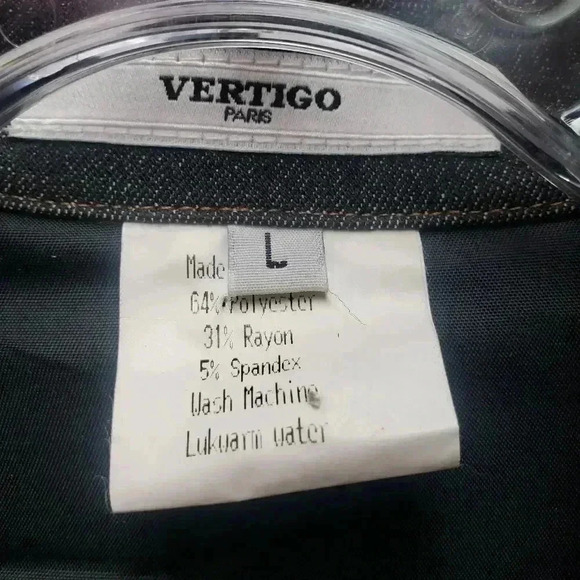 VERTIGO
PARIS
L
Made
64% Polyester
31% Rayon
5% Spandex
Wash Machine
Lukwarm water